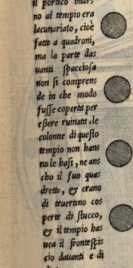 il portico intor-
no al tempio era
lacunariato, cioè
fatto a quadroni,
ma la parte dauanti
uanti spacciosa
non si compren-
de in che modo
fusse coperta per
essere ruinata, le
colonne di questo
tempio non hano
no le basi, ne an
cho il suo qua-
dretto, & erano
di tiuertino cos
perte di stucco,
& il tempio ha-
uea il frontespi-
cio dauanti e di